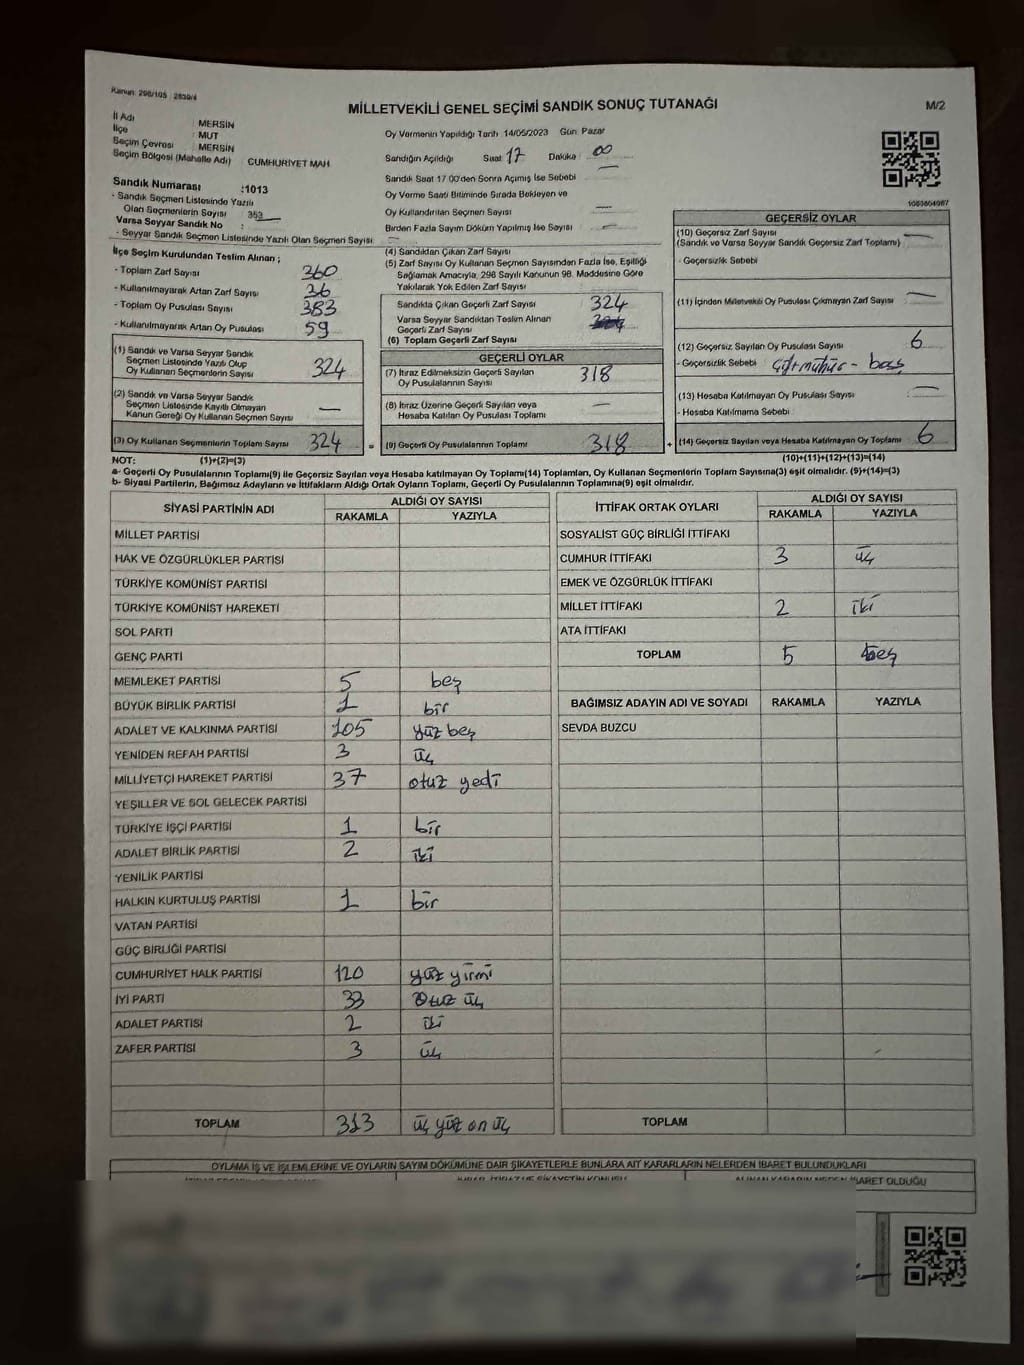 Kanun: 298/105 2839/4
MİLLETVEKİLİ GENEL SEÇİMİ SANDIK SONUÇ TUTANAĞI
M/2
İl Adı : MERSİN
İlçe : MUT
Seçim Çevresi : MERSİN
Seçim Bölgesi (Mahalle Adı) CUMHURİYET MAH
Sandık Numarası :1013
- Sandık Seçmen Listesinde Yazılı
Olan Seçmenlerin Sayısı 353
Varsa Seyyar Sandık No :
- Seyyar Sandık Seçmen Listesinde Yazılı Olan Seçmen Sayısı —
Oy Vermenin Yapıldığı Tarih 14/05/2023 Gün Pazar
Sandığın Açıldığı Saat 17 Dakika 00
Sandık Saat 17 00'den Sonra Açımış İse Sebebi —
Oy Verme Saati Bitiminde Sırada Bekleyen ve
Oy Kullandırılan Seçmen Sayısı —
Birden Fazla Sayım Döküm Yapılmış İse Sayısı —
İlçe Seçim Kurulundan Teslim Alınan ;
- Toplam Zarf Sayısı 360
- Kullanılmayarak Artan Zarf Sayısı 36
- Toplam Oy Pusulası Sayısı 383
- Kullanılmayarak Artan Oy Pusulası 59
(1) Sandık ve Varsa Seyyar Sandık
Seçmen Listesinde Yazılı Olup
Oy Kullanan Seçmenlerin Sayısı 324
(2) Sandık ve Varsa Seyyar Sandık
Seçmen Listesinde Kayıtlı Olmayan
Kanun Gereği Oy Kullanan Seçmen Sayısı —
(3) Oy Kullanan Seçmenlerin Toplam Sayısı 324 =
(4) Sandıktan Çıkan Zarf Sayısı
(5) Zarf Sayısı Oy Kullanan Seçmen Sayısından Fazla İse, Eşitliği
Sağlamak Amacıyla, 298 Sayılı Kanunun 98. Maddesine Göre
Yakılarak Yok Edilen Zarf Sayısı
Sandıkta Çıkan Geçerli Zarf Sayısı 324
Varsa Seyyar Sandıktan Teslim Alınan
Geçerli Zarf Sayısı
(6) Toplam Geçerli Zarf Sayısı
GEÇERLİ OYLAR
(7) İtiraz Edilmeksizin Geçerli Sayılan
Oy Pusulalarının Sayısı 318
(8) İtiraz Üzerine Geçerli Sayılan veya
Hesaba Katılan Oy Pusulası Toplamı —
(9) Geçerli Oy Pusulalarının Toplamı 318 +
1083804087
GEÇERSİZ OYLAR
(10) Geçersiz Zarf Sayısı —
(Sandık ve Varsa Seyyar Sandık Geçersiz Zarf Toplamı)
- Geçersizlik Sebebi
(11) İçinden Milletvekili Oy Pusulası Çıkmayan Zarf Sayısı : —
(12) Geçersiz Sayılan Oy Pusulası Sayısı 6
- Geçersizlik Sebebi çift mühür - boş
(13) Hesaba Katılmayan Oy Pusulası Sayısı : —
- Hesaba Katılmama Sebebi
(14) Geçersiz Sayılan veya Hesaba Katılmayan Oy Toplamı 6
NOT: (1)+(2)=(3) (10)+(11)+(12)+(13)=(14)
a- Geçerli Oy Pusulalarının Toplamı(9) ile Geçersiz Sayılan veya Hesaba katılmayan Oy Toplamı(14) Toplamları, Oy Kullanan Seçmenlerin Toplam Sayısına(3) eşit olmalıdır. (9)+(14)=(3)
b- Siyasi Partilerin, Bağımsız Adayların ve İttifakların Aldığı Ortak Oyların Toplamı, Geçerli Oy Pusulalarının Toplamına(9) eşit olmalıdır.
SİYASİ PARTİNİN ADI ALDIĞI OY SAYISI
RAKAMLA YAZIYLA
MİLLET PARTİSİ
HAK VE ÖZGÜRLÜKLER PARTİSİ
TÜRKİYE KOMÜNİST PARTİSİ
TÜRKİYE KOMÜNİST HAREKETİ
SOL PARTİ
GENÇ PARTİ
MEMLEKET PARTİSİ 5 beş
BÜYÜK BİRLİK PARTİSİ 1 bir
ADALET VE KALKINMA PARTİSİ 105 yüz beş
YENİDEN REFAH PARTİSİ 3 üç
MİLLİYETÇİ HAREKET PARTİSİ 37 otuz yedi
YEŞİLLER VE SOL GELECEK PARTİSİ
TÜRKİYE İŞÇİ PARTİSİ 1 bir
ADALET BİRLİK PARTİSİ 2 iki
YENİLİK PARTİSİ
HALKIN KURTULUŞ PARTİSİ 1 bir
VATAN PARTİSİ
GÜÇ BİRLİĞİ PARTİSİ
CUMHURİYET HALK PARTİSİ 120 yüz yirmi
İYİ PARTİ 33 otuz üç
ADALET PARTİSİ 2 iki
ZAFER PARTİSİ 3 üç
TOPLAM 313 üç yüz on üç
İTTİFAK ORTAK OYLARI ALDIĞI OY SAYISI
RAKAMLA YAZIYLA
SOSYALİST GÜÇ BİRLİĞİ İTTİFAKI
CUMHUR İTTİFAKI 3 üç
EMEK VE ÖZGÜRLÜK İTTİFAKI
MİLLET İTTİFAKI 2 iki
ATA İTTİFAKI
TOPLAM 5 beş
BAĞIMSIZ ADAYIN ADI VE SOYADI RAKAMLA YAZIYLA
SEVDA BUZCU
TOPLAM
OYLAMA İŞ VE İŞLEMLERİNE VE OYLARIN SAYIM DÖKÜMÜNE DAİR ŞİKAYETLERLE BUNLARA AİT KARARLARIN NELERDEN İBARET BULUNDUKLARI